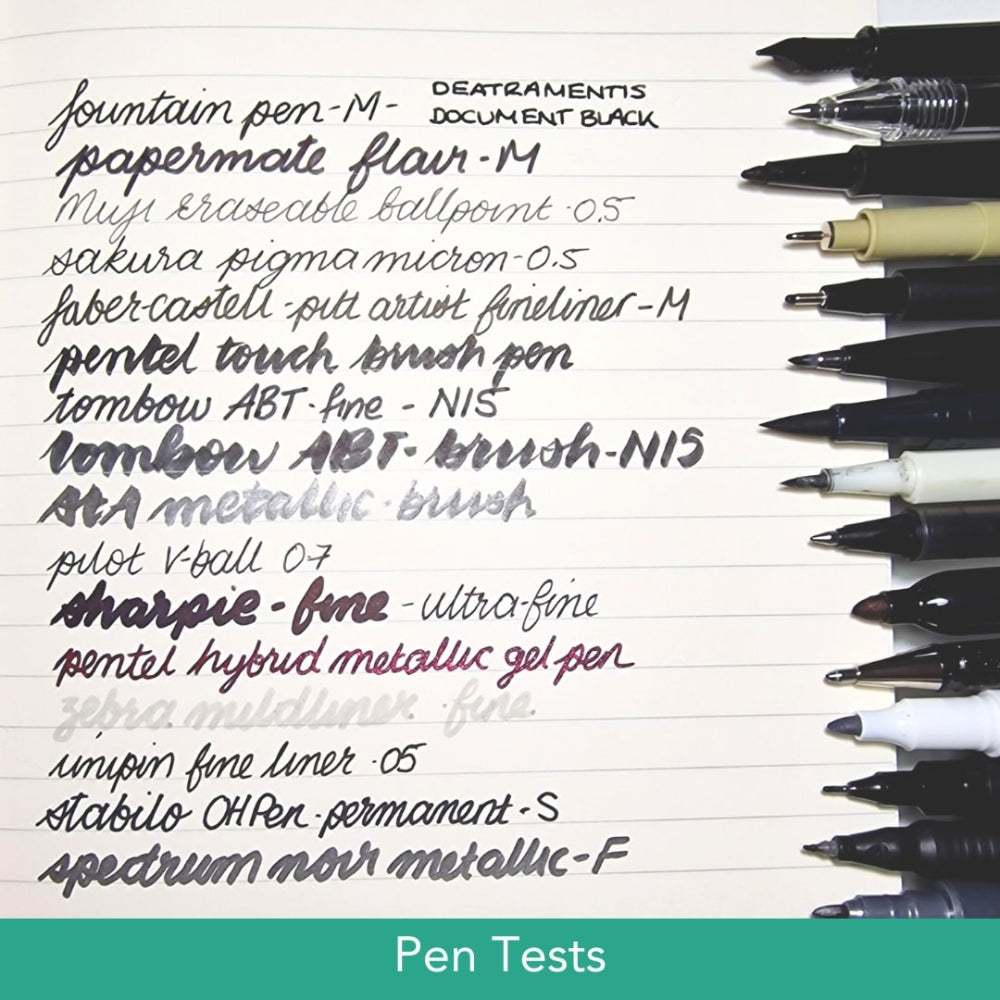 fountain pen-M- DEATRAMENTIS
DOCUMENT BLACK
papermate flair-M
Muji eraseable ballpoint ·0.5
sakura pigma micron-0.5
faber-castell-pitt artist fineliner-M
pentel touch brush pen
tombow ABT-fine - N15
tombow ABT-brush-N15
StA metallic-brush
pilot V-ball 07
sharpie - fine - ultra-fine
pentel hybrid metallic gel pen
zebra mildliner · fine
unipin fine liner ·05
stabilo OHPen-permanent-S
spectrum noir metallic-F
Pen Tests